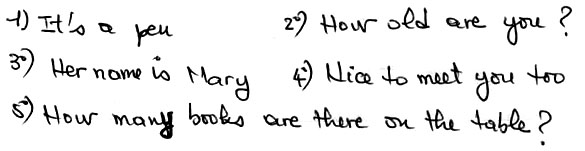 1) It's a pen 2) How old are you?
3) Her name is Mary 4) Nice to meet you too
5) How many books are there on the table?